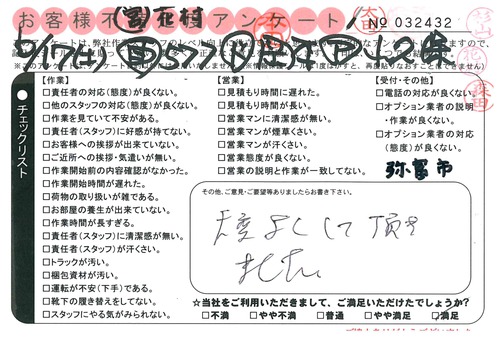 お客様不満足アンケート
No 032432
チェックリスト
【作業】
□責任者の対応(態度)が良くない。
□他のスタッフの対応(態度)が良くない。
□作業を見ていて不安がある。
□責任者(スタッフ)に好感が持てない。
□お客様への挨拶が出来ていない。
□ご近所への挨拶・気遣いが無い。
□作業開始前の内容確認がなかった。
□作業開始時間が遅れた。
□荷物の取り扱いが雑である。
□お部屋の養生が出来ていない。
□作業時間が長すぎる。
□責任者(スタッフ)に清潔感が無い。
□責任者(スタッフ)が汗くさい。
□トラックが汚い。
□梱包資材が汚い。
□運転が不安(下手)である。
□靴下の履き替えをしてない。
□スタッフにやる気がみられない。
【営業】
□見積もり時間に遅れた。
□見積もり時間が長い。
□営業マンに清潔感が無い。
□営業マンが煙草くさい。
□営業マンが汗くさい。
□営業態度が良くない。
□営業の説明と作業が一致してない。
【受付・その他】
□電話の対応が良くない。
□オプション業者の説明
・作業が良くない。
□オプション業者の対応
(態度)が良くない。
弥富市
その他、ご意見・ご要望等ありましたらお書き下さい。
大変よくして頂き
ました
☆当社をご利用いただきまして、ご満足いただけたでしょうか?
□不満 □やや不満 □普通 □やや満足 □満足